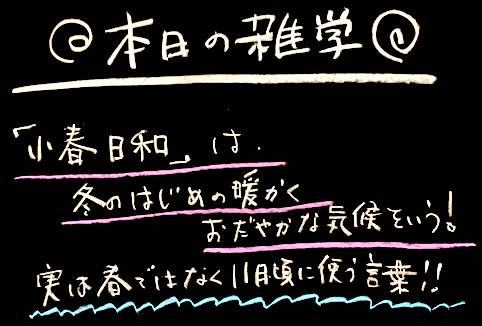 @本日の雑学@
「小春日和」は、
冬のはじめの暖かく
おだやかな気候をいう!
実は春ではなく11月頃に使う言葉!!